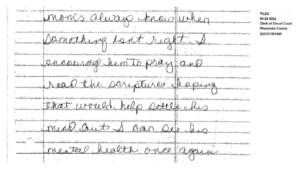 mom's always know when
something isnt right. I
encourag him to pray and
read the scriptures hoping
that would help settle his
mind but I can see his
mental health once again
FILED
Clerk of Circuit Court
County